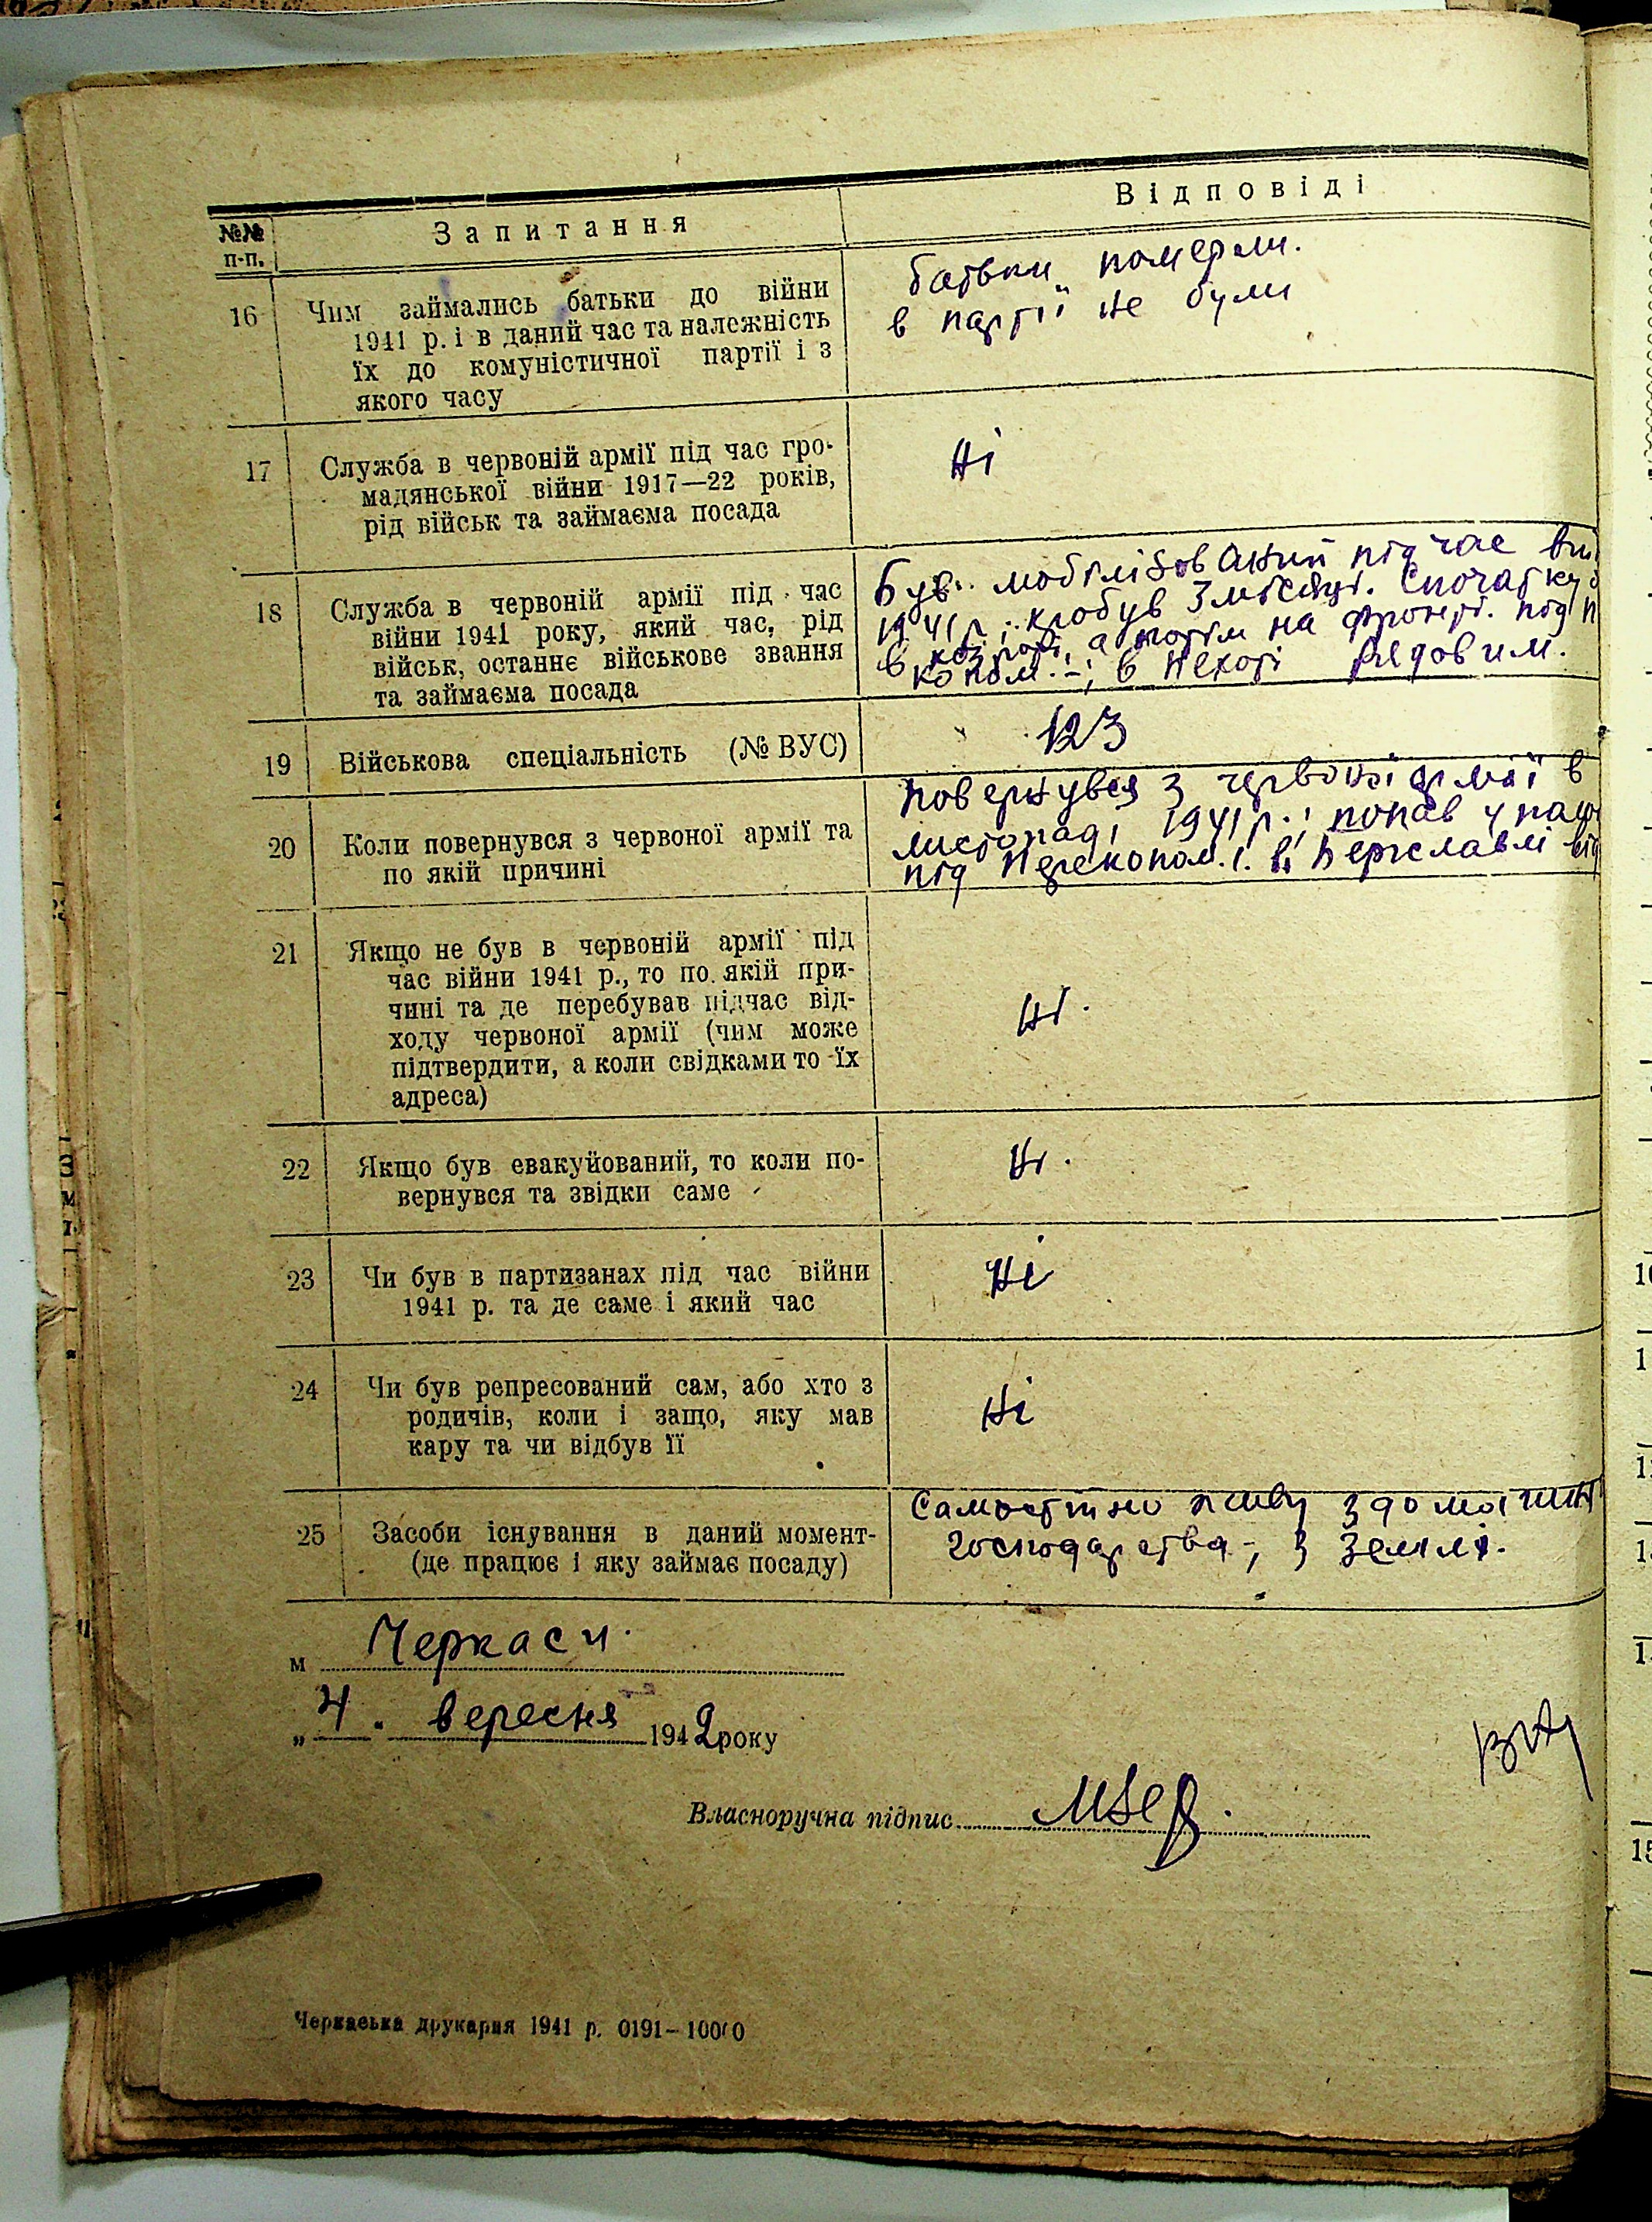 №№ п-п.
Запитання
Відповіді
16
Чим займались батьки до війни
1941 р. і в даний час та належність
їх до комуністичної партії і з
якого часу
батьки померли.
в партії не були
17
Служба в червоній армії під час гро-
мадянської війни 1917—22 років,
рід військ та займаєма посада
Ні
18
Служба в червоній армії під час
війни 1941 року, який час, рід
військ, останнє військове звання
та займаєма посада
Був мобілізований під час
1941 р.; пробув 3 місяці. Спочатку
в а потім на фронті. під
копом.-; в пехоті рядовим.
19
Військова спеціальність (№ ВУС)
123
20
Коли повернувся з червоної армії та
по якій причині
Повернувся з червоної армії в
листопаді 1941 р.; попав у
під Перекопом. і. в Переславлі
21
Якщо не був в червоній армії під
час війни 1941 р., то по якій при-
чині та де перебував підчас від-
ходу червоної армії (чим може
підтвердити, а коли свідками то їх
адреса)
Ні.
22
Якщо був евакуйований, то коли по-
вернувся та звідки саме
Ні.
23
Чи був в партизанах під час війни
1941 р. та де саме і який час
Ні
24
Чи був репресований сам, або хто з
родичів, коли і защо, яку мав
кару та чи відбув її
Ні
25
Засоби існування в даний момент-
(де працює і яку займає посаду)
Самостійно живу з
господарства-; з землі.
м Черкаси.
„ 4. вересня 1942 року
Власноручна підпис
Черкаська друкарня 1941 р. 0191—10000